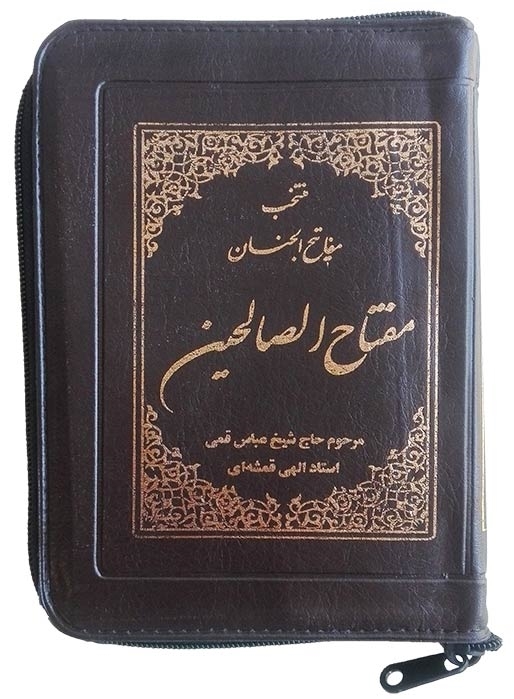 منتخب
مفاتیح الجنان
مفتاح الصالحین
مرحوم حاج شیخ عباس قمی
استاد الهی قمشه‌ای